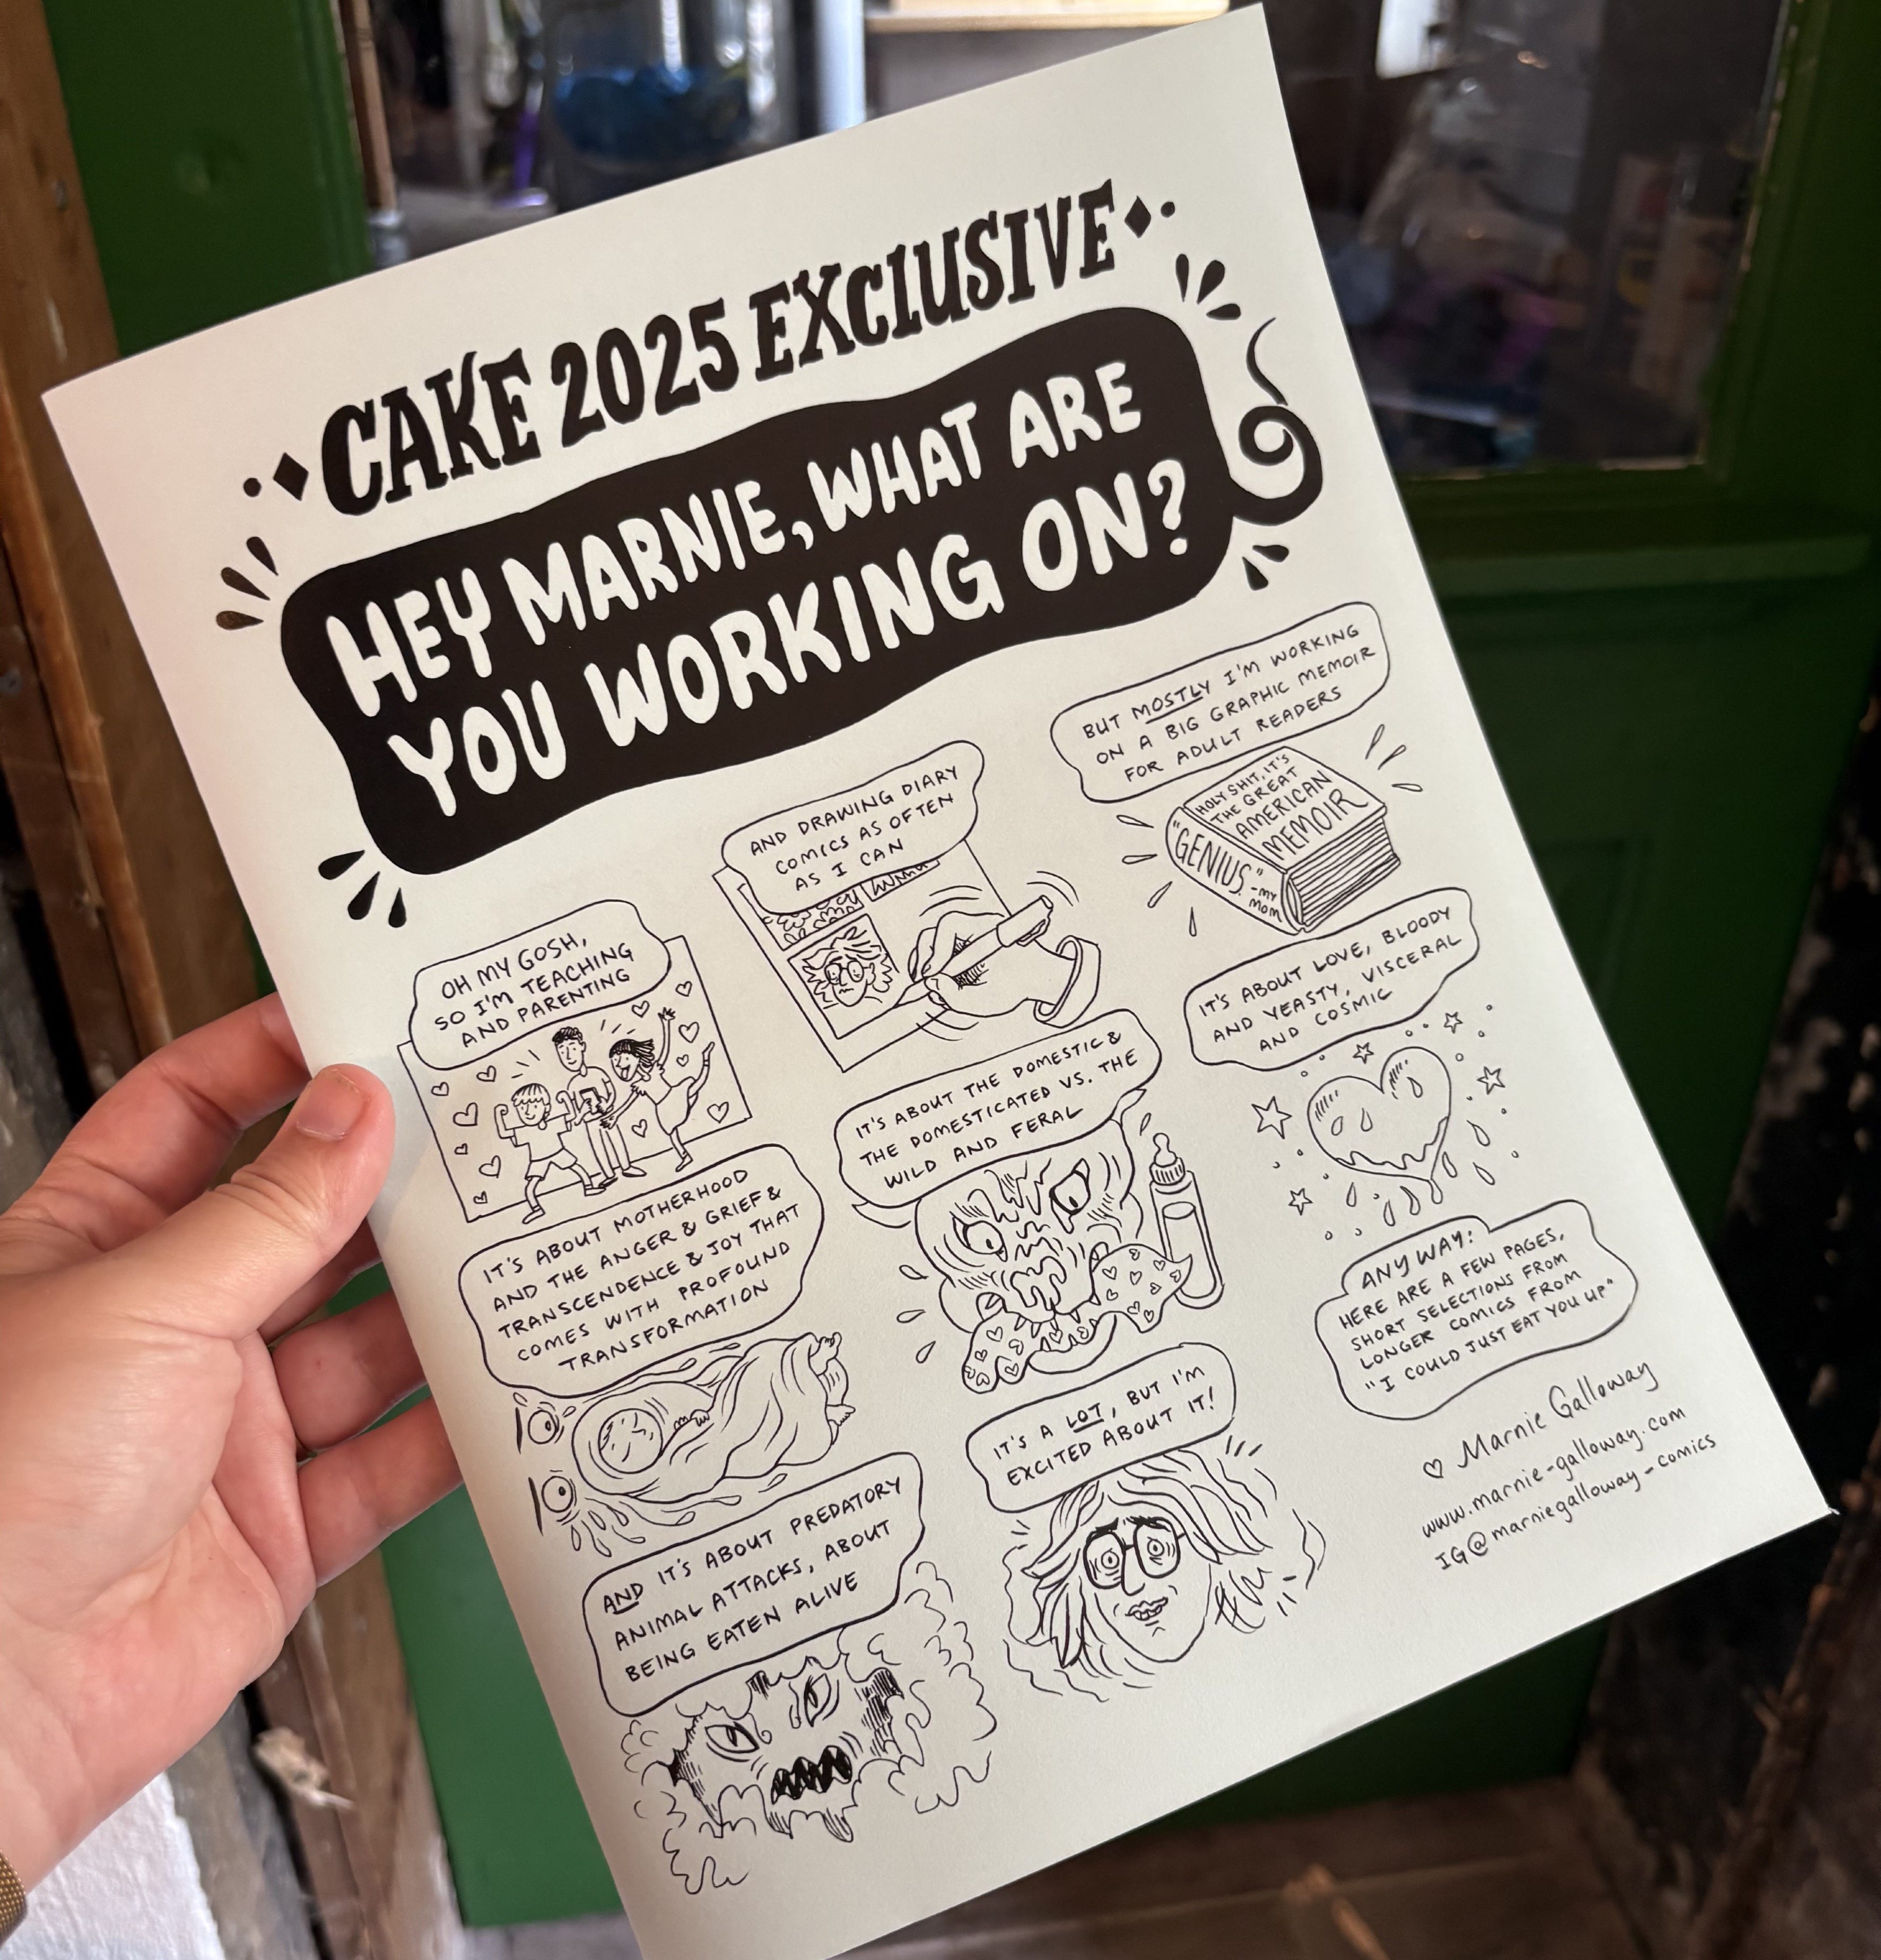 CAKE 2025 EXCLUSIVE
HEY MARNIE, WHAT ARE
YOU WORKING ON?
OH MY GOSH,
SO I'M TEACHING
AND PARENTING
AND DRAWING DIARY
COMICS AS OFTEN
AS I CAN
BUT MOSTLY I'M WORKING
ON A BIG GRAPHIC MEMOIR
FOR ADULT READERS
HOLY SHIT, IT'S
THE GREAT
AMERICAN
MEMOIR
"GENIUS."
-MY
MOM
IT'S ABOUT MOTHERHOOD
AND THE ANGER & GRIEF &
TRANSCENDENCE & JOY THAT
COMES WITH PROFOUND
TRANSFORMATION
IT'S ABOUT THE DOMESTIC &
THE DOMESTICATED VS. THE
WILD AND FERAL
IT'S ABOUT LOVE, BLOODY
AND YEASTY, VISCERAL
AND COSMIC
AND IT'S ABOUT PREDATORY
ANIMAL ATTACKS, ABOUT
BEING EATEN ALIVE
IT'S A LOT, BUT I'M
EXCITED ABOUT IT!
ANYWAY:
HERE ARE A FEW PAGES,
SHORT SELECTIONS FROM
LONGER COMICS FROM
"I COULD JUST EAT YOU UP"
♡ Marnie Galloway
www.marnie-galloway.com
IG@marniegalloway_comics